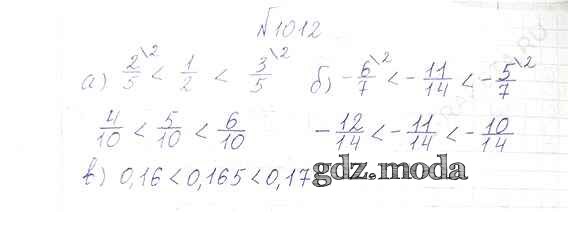 №1012
а) 2/5\2 < 1/2 < 3/5\2 б) -6/7\2 < -11/14 < -5/7\2
4/10 < 5/10 < 6/10 -12/14 < -11/14 < -10/14
в) 0,16 < 0,165 < 0,17
gdz.moda